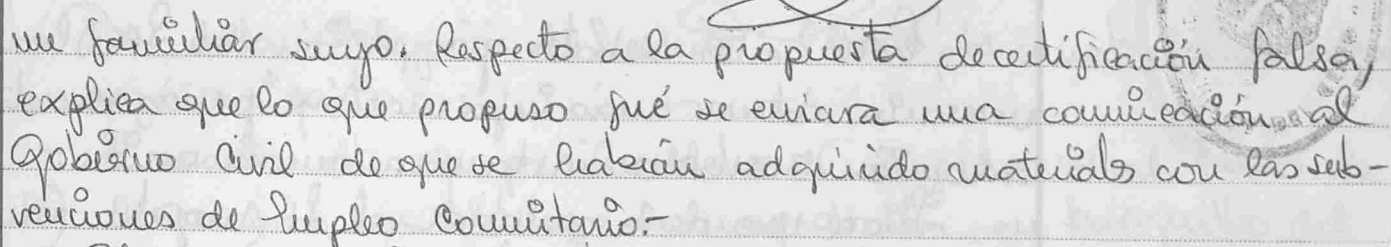 un familiar suyo. Respecto a la propuesta de certificación falsa,
explica que lo que propuso fué se enviara una comunicación al
Gobierno Civil de que se habían adquirido materials con las sub-
venciones de Empleo Comunitario.-